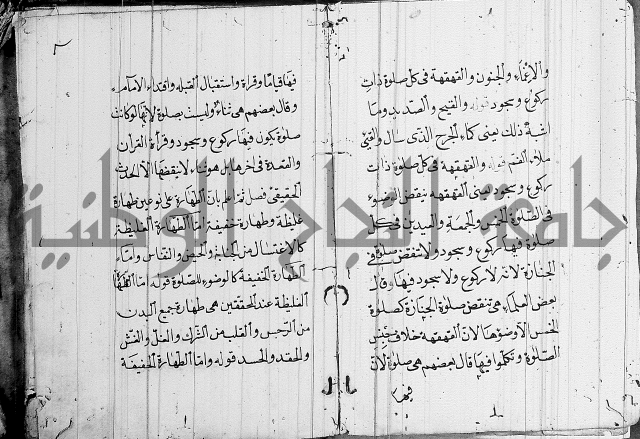 والاغماء والجنون والقهقهة في كل صلوة ذات
ركوع وسجود قوله والقيح والصديد وما
اشبه ذلك يعني كماء الجرح الذي سال والقئ
ملاء الفم قوله والقهقهة في كل صلوة ذات
ركوع وسجود يعني القهقهة ينقض الوضوء
في الصلوة الخمس والجمعة والعيدين في كل
صلوة فيها ركوع وسجود ولا تنقض صلوة في
الجنازة لانه لا ركوع ولا سجود فيها وقال
بعض العلماء هي تنقض صلوة الجنازة كصلوة
الخمس لا وضوءها لان القهقهة خلاف جنس
الصلوة وتكلموا فيها قال بعضهم هي صلوة لان
فيها
فيها قياما وقراءة واستقبال القبلة واقتداء الامام
وقال بعضهم هي ثناء وليست بصلوة لانها لو كانت
صلوة يكون فيها ركوع وسجود وقرأة القران
والقعدة في اخرها بل هو ثناء لا ينقضها الا الحدث
الحقيقي فصل ثم اعلم بان الطهارة على نوعين طهارة
غليظة وطهارة خفيفة اما الطهارة الغليظة
كالاغتسال من الجنابة والحيض والنفاس واما
الطهارة الخفيفة كالوضوء للصلوة قوله اما الطهارة
الغليظة عند المحققين هي طهارة جميع البدن
من النجس والقلب من الشرك والغل والغش
والحقد والحسد قوله واما الطهارة الخفيفة
جامعة النجاح الوطنية